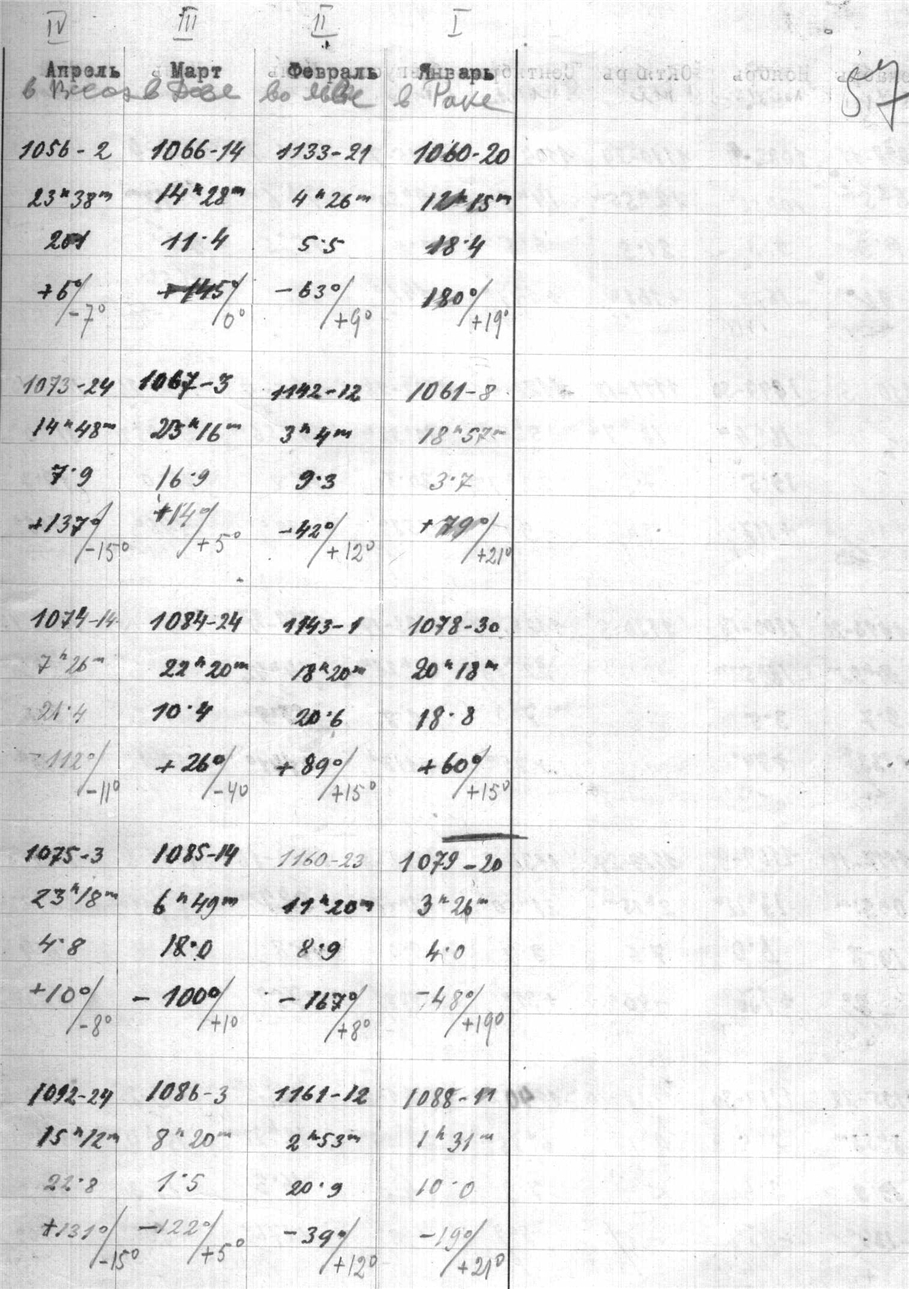 IV III II I
Апрель Март Февраль Январь
в Весах в Деве во Льве в Раке
57
1056-2 1066-14 1133-21 1060-20
23ч38м 14ч28м 4ч26м 12ч15м
11·4 5·5 18·4
+6°/-7° /0° -63°/+9° 180°/+19°
1073-24 1067-3 1142-12 1061-8
14ч48м 23ч16м 3ч4м 18ч57м
7·9 16·9 9·3 3·7
+137°/-15° +14°/+5° -42°/+12° +79°/+21°
1074-14 1084-24 1143-1 1078-30
7ч26м 22ч20м 18ч20м 20ч18м
21·4 10·4 20·6 18·8
-112°/-11° +26°/-4° +89°/+15° +60°/+15°
1075-3 1085-14 1160-23 1079-20
23ч18м 6ч49м 11ч20м 3ч26м
4·8 18·0 8·9 4·0
+10°/-8° -100°/+1° -167°/+8° -48°/+19°
1092-24 1086-3 1161-12 1088-11
15ч12м 8ч20м 2ч53м 1ч31м
22·8 1·5 20·9 10·0
+131°/-15° -122°/+5° -39°/+12° -19°/+21°